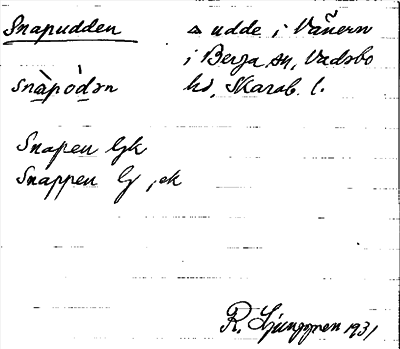 Snapudden ▵ udde i Vänern
i Berga sn, Vadsbo
snàpódən hd, Skarab. l.
Snapen Gk
Snappen G, ek
R. Ljunggren 1931